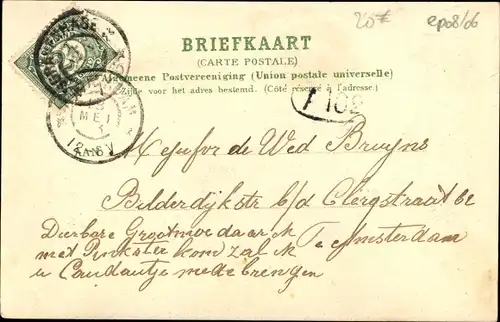 20€ epo8/06
BRIEFKAART
(CARTE POSTALE)
Algemeene Postvereeniging (Union postale universelle)
Zijde voor het adres bestemd. (Côté réservé à l'adresse.)
102
ME 1
12
Mejufvr de Wed Bruyns
Bilderdijkstr b/d Clergstraat 62
Dierbare Grootmoe daar ik Te Amsterdam
met Pinkster kom zal ik
u Candautje mede brengen